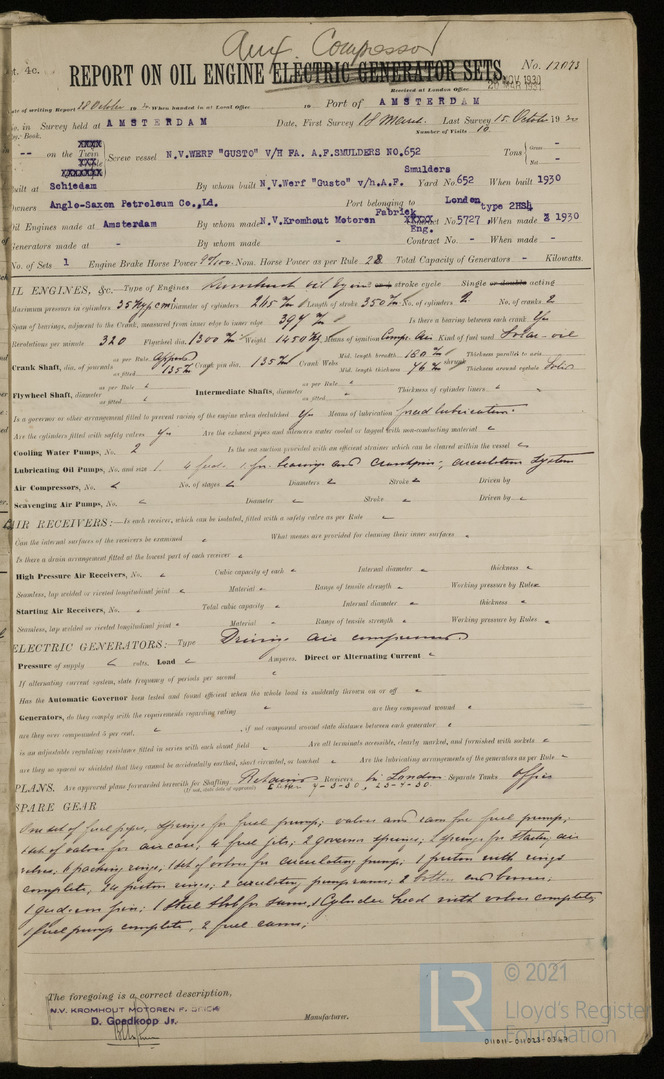 Aux. Compressor
pt. 4c.
REPORT ON OIL ENGINE ELECTRIC GENERATOR SETS.
No. 12073
Received at London Office
Date of writing Report 28 October 19 When handed in at Local Office 19 Port of AMSTERDAM
No. in Survey held at AMSTERDAM Date, First Survey 18 March Last Survey 15 October 1930
Reg. Book. Number of Visits 10
-- on the Twin Screw vessel N.V.WERF "GUSTO" V/H FA. A.F.SMULDERS NO.652 Tons Gross - Net -
Built at Schiedam By whom built N.V.Werf "Gusto" v/h.A.F. Smulders Yard No. 652 When built 1930
Owners Anglo-Saxon Petroleum Co.,Ld. Port belonging to London
Oil Engines made at Amsterdam By whom made N.V.Kromhout Motoren Fabriek Eng. No. 5727 type 2HS4, When made 1930
Generators made at - By whom made - Contract No. - When made -
No. of Sets 1 Engine Brake Horse Power Nom. Horse Power as per Rule 28 Total Capacity of Generators - Kilowatts.
OIL ENGINES, &c.— Type of Engines Kromhout oil engine stroke cycle Single or double acting
Maximum pressure in cylinders 35 Kg/cm² Diameter of cylinders 245 m/m Length of stroke 350 m/m No. of cylinders 2 No. of cranks 2
Span of bearings, adjacent to the Crank, measured from inner edge to inner edge 397 m/m Is there a bearing between each crank Yes
Revolutions per minute 320 Flywheel dia. 1300 m/m Weight 1450 Kg Means of ignition Comp. Air Kind of fuel used Solar-oil
Crank Shaft, dia. of journals as per Rule Approved as fitted 135 m/m Crank pin dia. 135 m/m Crank Webs Mid. length breadth 180 m/m Mid. length thickness 76 m/m Thickness parallel to axis Thickness around eyehole Solid
Flywheel Shaft, diameter as per Rule as fitted Intermediate Shafts, diameter as per Rule as fitted Thickness of cylinder liners
Is a governor or other arrangement fitted to prevent racing of the engine when declutched Yes Means of lubrication forced lubrication.
Are the cylinders fitted with safety valves Yes Are the exhaust pipes and silencers water cooled or lagged with non-conducting material
Cooling Water Pumps, No. 2 Is the sea suction provided with an efficient strainer which can be cleared within the vessel
Lubricating Oil Pumps, No. and size 1. 4 feed - 1 for bearings and crankpins, circulation system
Air Compressors, No. No. of stages Diameters Stroke Driven by
Scavenging Air Pumps, No. Diameter Stroke Driven by
AIR RECEIVERS:—Is each receiver, which can be isolated, fitted with a safety valve as per Rule
Can the internal surfaces of the receivers be examined What means are provided for cleaning their inner surfaces
Is there a drain arrangement fitted at the lowest part of each receiver
High Pressure Air Receivers, No. Cubic capacity of each Internal diameter thickness
Seamless, lap welded or riveted longitudinal joint Material Range of tensile strength Working pressure by Rules
Starting Air Receivers, No. Total cubic capacity Internal diameter thickness
Seamless, lap welded or riveted longitudinal joint Material Range of tensile strength Working pressure by Rules
ELECTRIC GENERATORS:—Type Driving air compressors
Pressure of supply volts. Load Amperes. Direct or Alternating Current
If alternating current system, state frequency of periods per second
Has the Automatic Governor been tested and found efficient when the whole load is suddenly thrown on or off
Generators, do they comply with the requirements regarding rating are they compound wound
are they over compounded 5 per cent. , if not compound wound state distance between each generator
is an adjustable regulating resistance fitted in series with each shunt field Are all terminals accessible, clearly marked, and furnished with sockets
are they so spaced or shielded that they cannot be accidentally earthed, short circuited, or touched Are the lubricating arrangements of the generators as per Rule
PLANS. Are approved plans forwarded herewith for Shafting Retained Receivers in London Separate Tanks office
(If not, state date of approval) E letter 4-3-30, 23-4-30.
SPARE GEAR
One set of fuel pipes, springs for fuel pump; valves and cam for fuel pump;
1 set of valves for air case, 4 fuel jets; 2 governor springs; 2 springs for starting air
valves, 6 packing rings; 1 set of valves for circulating pump; 1 piston with rings
complete, 24 piston rings; 2 circulating pump rams; 2 bottom end brasses;
1 gudgeon pin; 1 steel for 1 cylinder head with valves complete;
1 fuel pump complete, 2 fuel cams;
The foregoing is a correct description,
N.V. KROMHOUT MOTOREN FABRIEK
D. Goedkoop Jr.
Manufacturer.
LR © 2021
Lloyd's Register
Foundation
011011-011023-0367